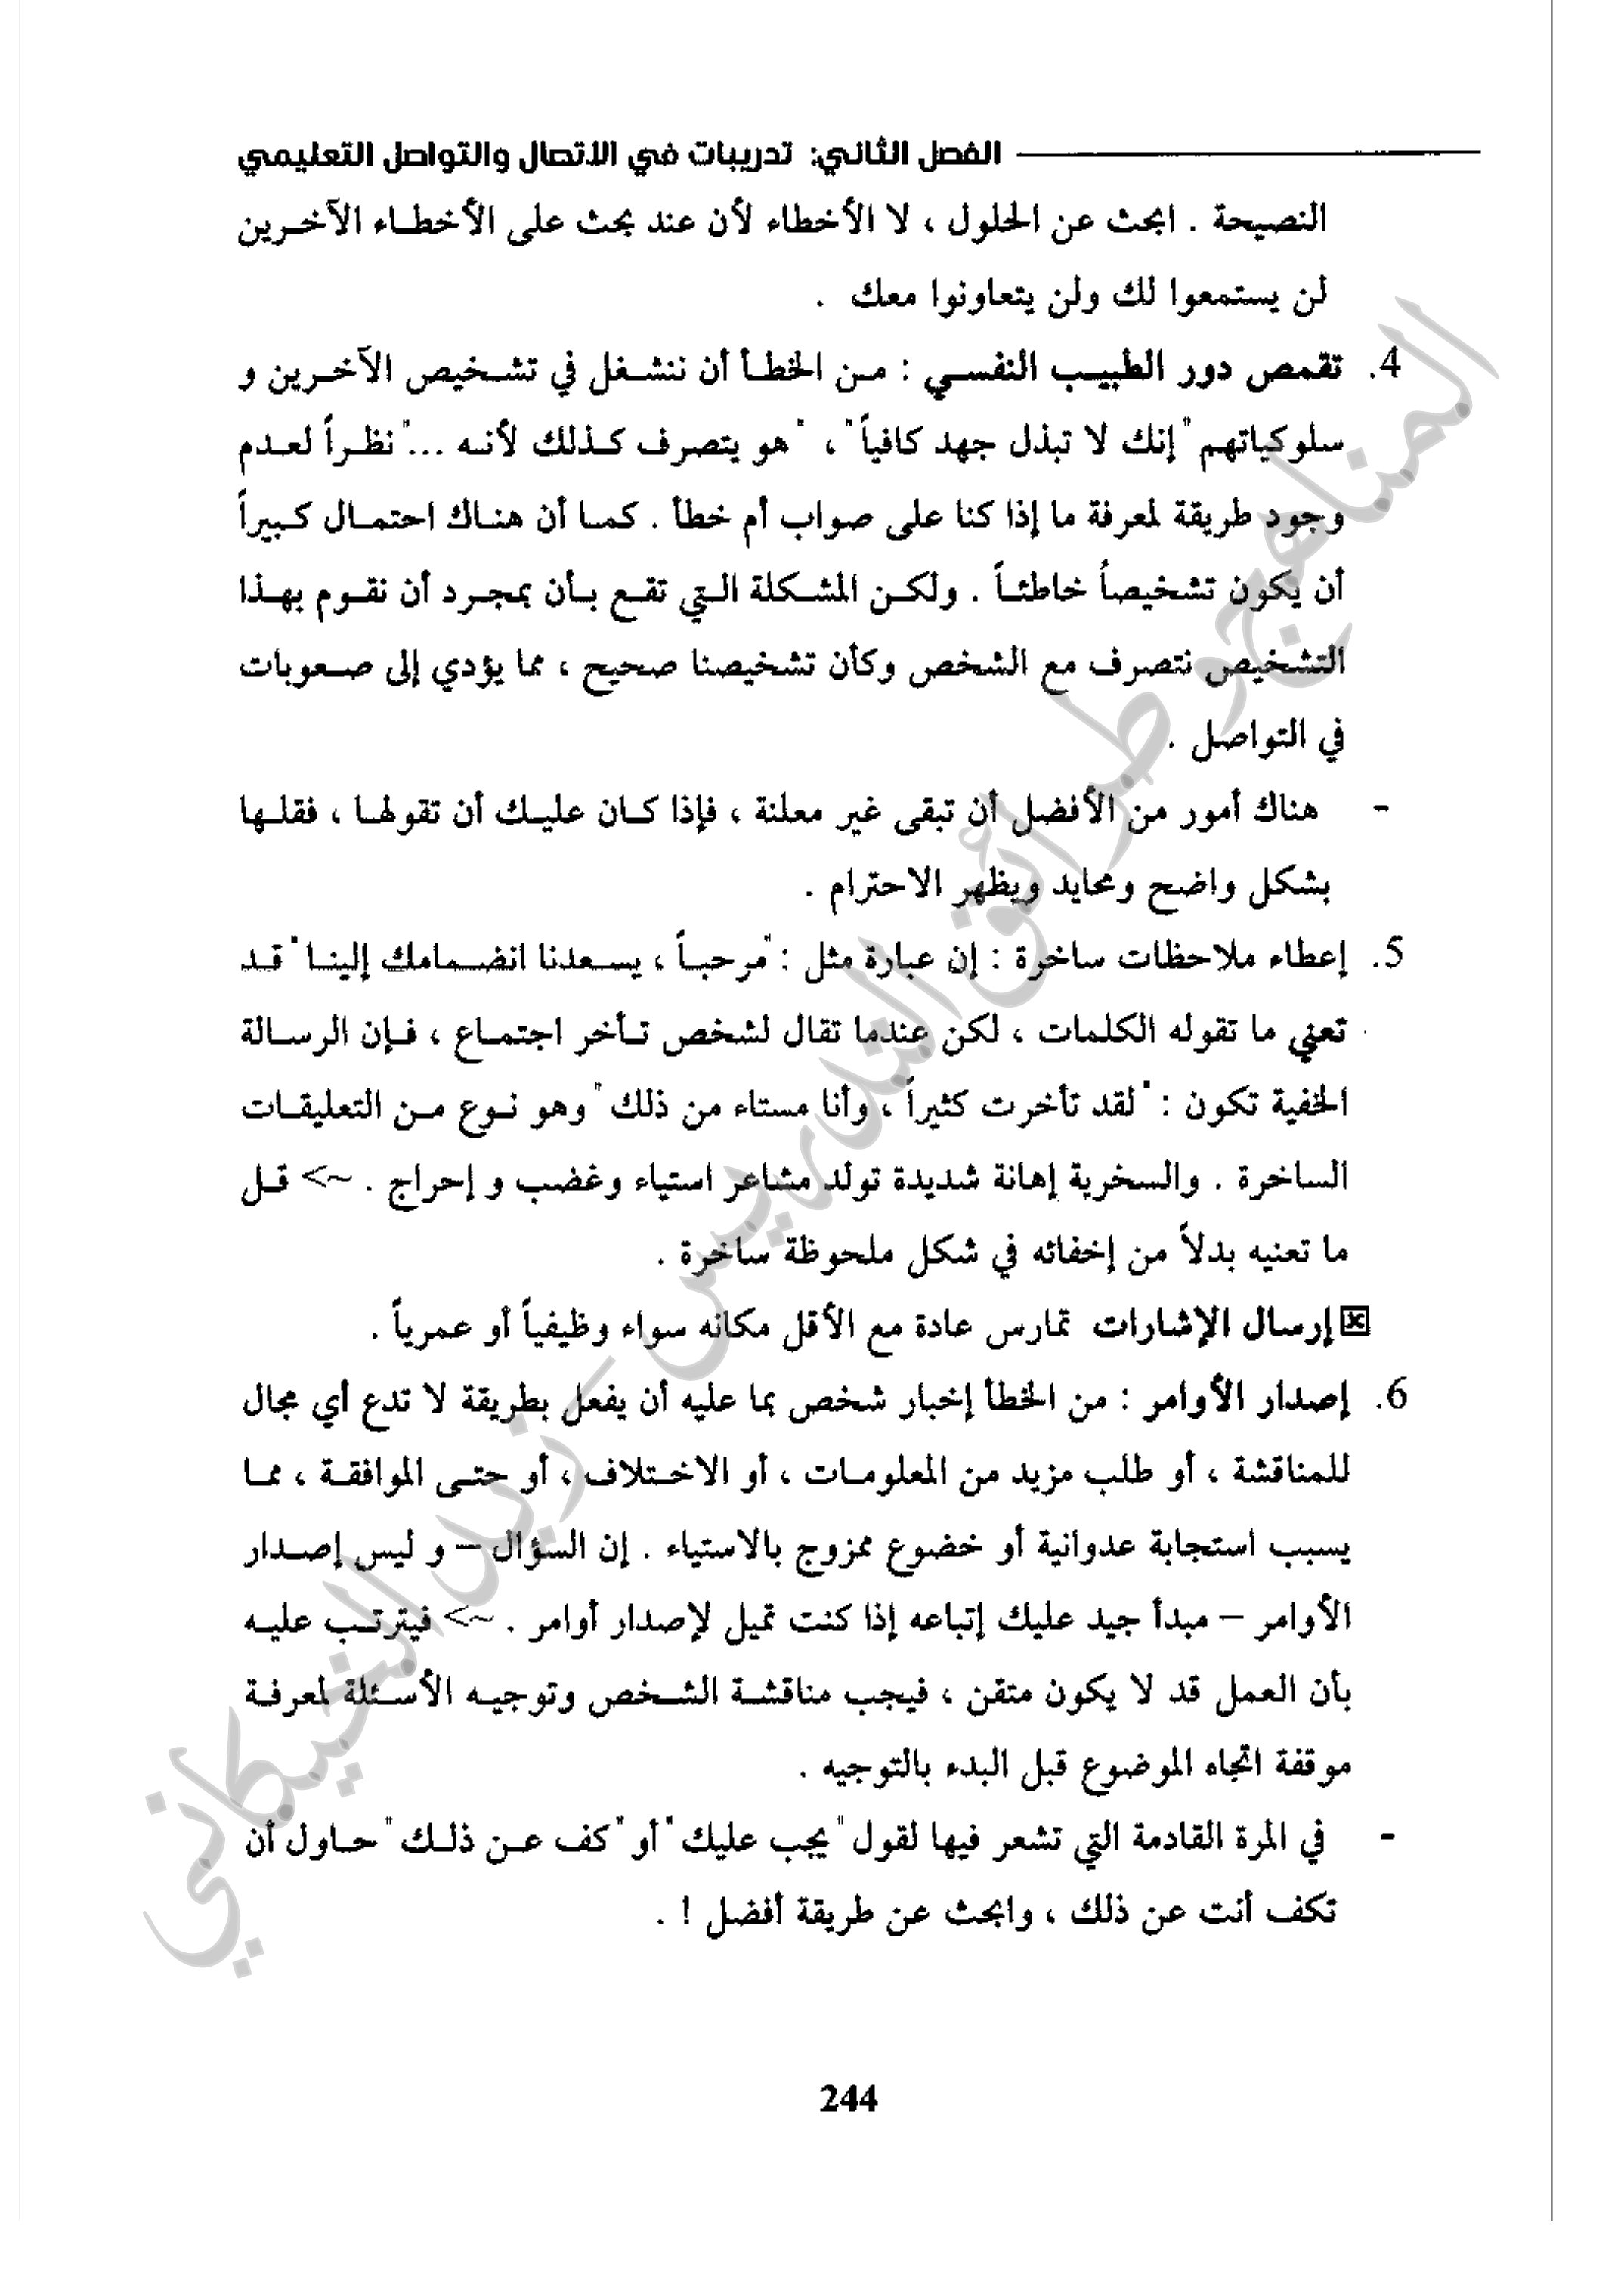 الفصل الثاني: تدريبات في الاتصال والتواصل التعليمي
النصيحة . ابحث عن الحلول ، لا الأخطاء لأن عند بحث على الأخطاء الآخرين
لن يستمعوا لك ولن يتعاونوا معك .
4. تقمص دور الطبيب النفسي : من الخطأ أن ننشغل في تشخيص الآخرين و
سلوكياتهم "إنك لا تبذل جهد كافياً" ، "هو يتصرف كذلك لأنه ..." نظراً لعدم
وجود طريقة لمعرفة ما إذا كنا على صواب أم خطأ . كما أن هناك احتمال كبيراً
أن يكون تشخيصاً خاطئاً . ولكن المشكلة التي تقع بأن بمجرد أن نقوم بهذا
التشخيص نتصرف مع الشخص وكأن تشخيصنا صحيح ، مما يؤدي إلى صعوبات
في التواصل .
- هناك أمور من الأفضل أن تبقى غير معلنة ، فإذا كان عليك أن تقولها ، فقلها
بشكل واضح ومحايد ويظهر الاحترام .
5. إعطاء ملاحظات ساخرة : إن عبارة مثل : "مرحباً ، يسعدنا انضمامك إلينا" قد
تعني ما تقوله الكلمات ، لكن عندما تقال لشخص تأخر اجتماع ، فإن الرسالة
الخفية تكون : "لقد تأخرت كثيراً ، وأنا مستاء من ذلك" وهو نوع من التعليقات
الساخرة . والسخرية إهانة شديدة تولد مشاعر استياء وغضب و إحراج . ~> قل
ما تعنيه بدلاً من إخفائه في شكل ملحوظة ساخرة .
إرسال الإشارات تمارس عادة مع الأقل مكانه سواء وظيفياً أو عمرياً .
6. إصدار الأوامر : من الخطأ إخبار شخص بما عليه أن يفعل بطريقة لا تدع أي مجال
للمناقشة ، أو طلب مزيد من المعلومات ، أو الاختلاف ، أو حتى الموافقة ، مما
يسبب استجابة عدوانية أو خضوع ممزوج بالاستياء . إن السؤال – و ليس إصدار
الأوامر – مبدأ جيد عليك إتباعه إذا كنت تميل لإصدار أوامر . ~> فيترتب عليه
بأن العمل قد لا يكون متقن ، فيجب مناقشة الشخص وتوجيه الأسئلة لمعرفة
موقفة اتجاه الموضوع قبل البدء بالتوجيه .
- في المرة القادمة التي تشعر فيها لقول "يجب عليك" أو "كف عن ذلك" حاول أن
تكف أنت عن ذلك ، وابحث عن طريقة أفضل ! .
244
المناهج وطرائق التدريس – زيد الخيكاني